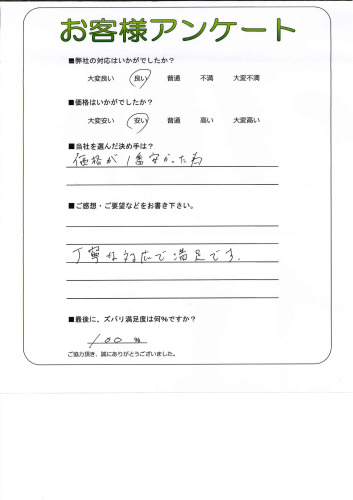 お客様アンケート
■弊社の対応はいかがでしたか？
大変良い 良い 普通 不満 大変不満
■価格はいかがでしたか？
大変安い 安い 普通 高い 大変高い
■当社を選んだ決め手は？
価格が1番安かった為
■ご感想・ご要望などをお書き下さい。
丁寧な対応で満足です。
■最後に、ズバリ満足度は何％ですか？
100 %
ご協力頂き、誠にありがとうございました。